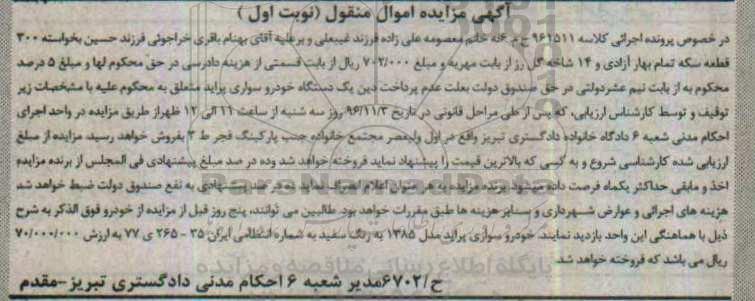 آگهی مزایده اموال منقول (نوبت اول )
در خصوص پرونده اجرائی کلاسه ۹۶۲۵۱۱ ج م ۶ له خانم معصومه علی زاده فرزند غیبعلی و بر علیه آقای بهنام باقری خراجوئی فرزند حسین بخواسته ۳۰۰
قطعه سکه تمام بهار آزادی و ۱۴ شاخه گل رز از بابت مهریه و مبلغ ۷۰۲/۰۰۰ ریال از بابت قسمتی از هزینه دادرسی در حق محکوم لها و مبلغ ۵ درصد
محکوم به از بابت نیم عشر دولتی در حق صندوق دولت بعلت عدم پرداخت دین یک دستگاه خودرو سواری پراید متعلق به محکوم علیه با مشخصات زیر
توقیف و توسط کارشناس ارزیابی، که پس از طی مراحل قانونی در تاریخ ۹۶/۱۱/۳ روز سه شنبه از ساعت ۱۱ الی ۱۲ ظهر از طریق مزایده در واحد اجرای
احکام مدنی شعبه ۶ دادگاه خانواده دادگستری تبریز واقع در اول ولیعصر مجتمع خانواده جنب پارکینگ فجر ط ۳ بفروش خواهد رسید. مزایده از مبلغ
ارزیابی شده کارشناسی شروع و به کسی که بالاترین قیمت را پیشنهاد نماید فروخته خواهد شد وده در صد مبلغ پیشنهادی فی المجلس از برنده مزایده
اخذ و مابقی حداکثر یکماه فرصت داده میشود برنده مزایده به هر عنوان اعلام انصراف نماید ده در صد پیشنهادی به نفع صندوق دولت ضبط خواهد شد
هزینه های اجرائی و عوارض شهرداری و سایر هزینه ها طبق مقررات خواهد بود. طالبین می توانند، پنج روز قبل از مزایده از خودرو فوق الذکر به شرح
ذیل با هماهنگی این واحد بازدید نمایند. خودرو سواری پراید مدل ۱۳۸۵ به رنگ سفید به شماره انتظامی ایران ۳۵ - ۲۶۵ ی ۷۷ به ارزش ۷۰/۰۰۰/۰۰۰
ریال می باشد که فروخته خواهد شد.
پایگاه اطلاع رسانی مناقصه و مزایده
ح/۶۷۰۲ مدیر شعبه ۶ احکام مدنی دادگستری تبریز-مقدم